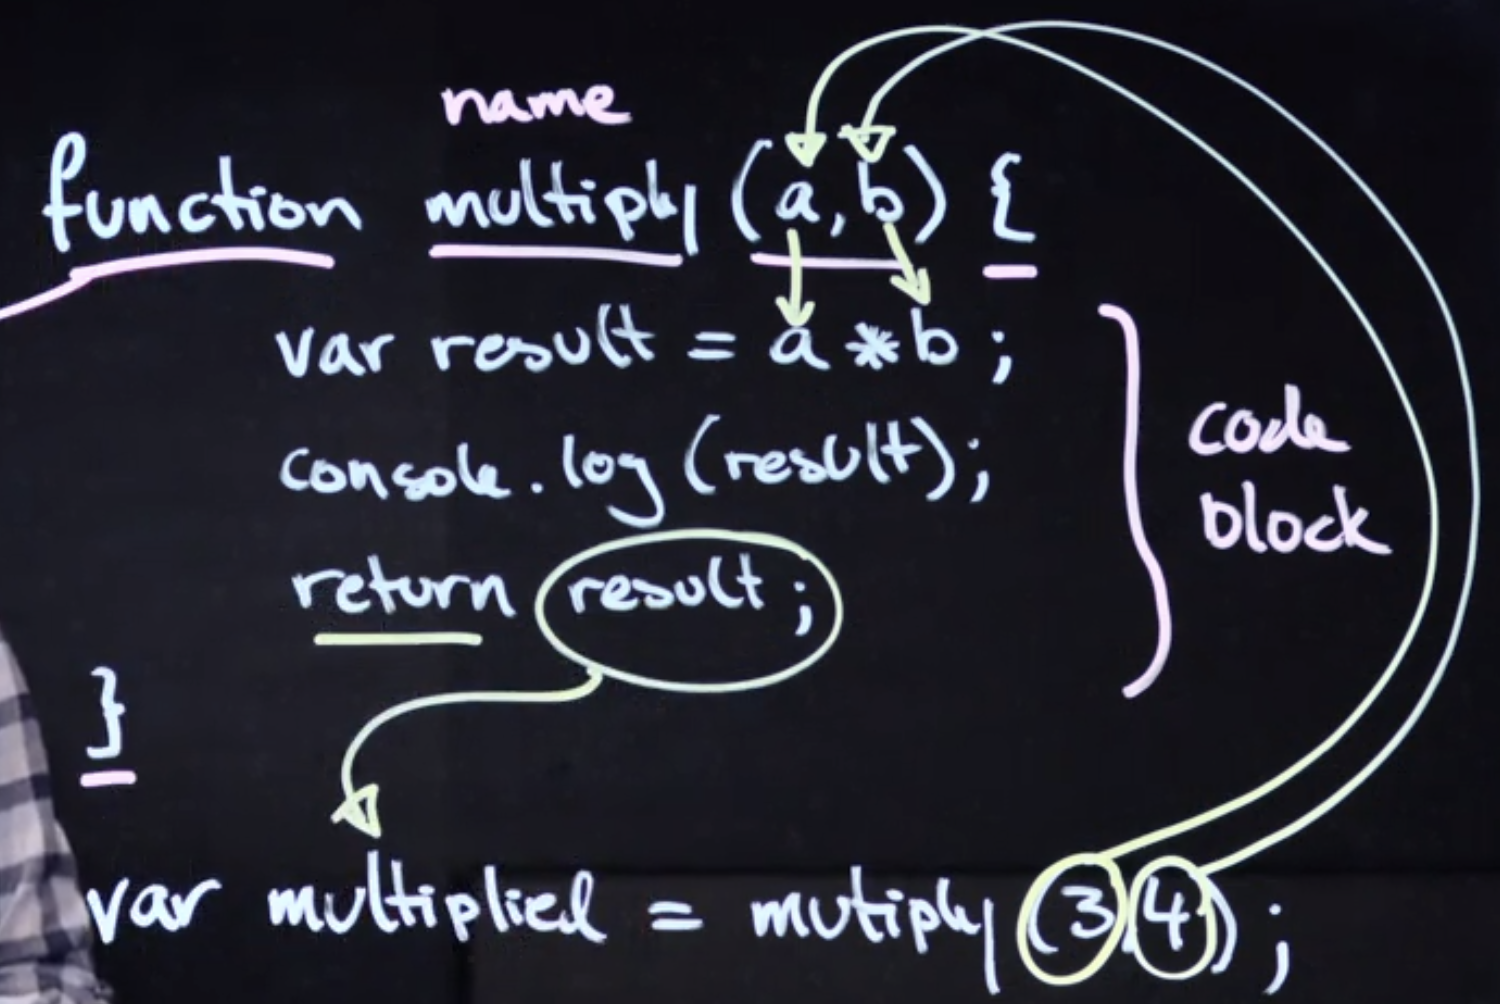 name
function multiply (a,b) {
var result = a * b ;
console.log (result);
code
block
return result ;
}
var multiplied = mutiply (3,4) ;